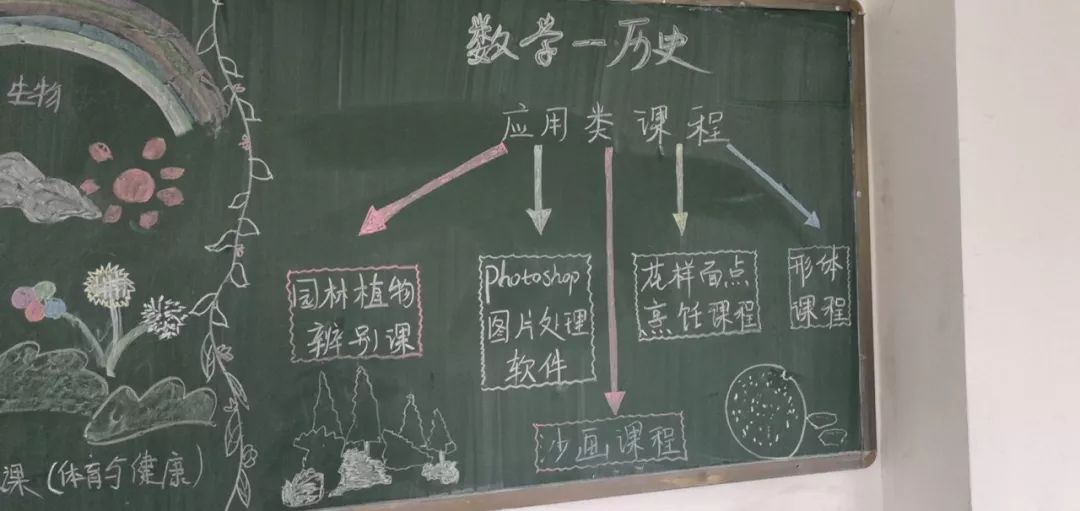 生物
课(体育与健康)
数学一历史
应用类课程
园林植物
辨别课
photoshop
图片处理
软件
沙画课程
花样面点
烹饪课程
形体
课程